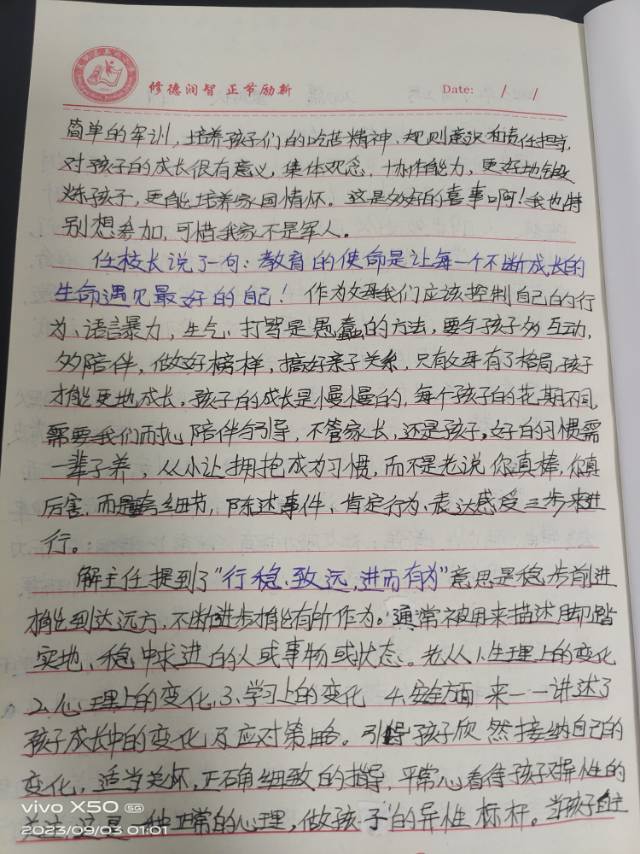 修德润智 正节励新
Date: / /
简单的军训,培养孩子们的吃苦精神,规则意议和责任担当,
对孩子的成长很有意义,集体观念,协作能力,更好地锻
炼孩子,更能培养家国情怀。这是多好的喜事啊!我也特
别想参加,可惜我家不是军人。
任校长说了一句:教育的使命是让每一个不断成长的
生命遇见最好的自己!作为父母我们应该控制自己的行
为、语言暴力,生气、打骂是愚蠢的方法,要与孩子多互动,
多陪伴,做好榜样,搞好亲子关系,只有父母有了格局,孩子
才能更地成长,孩子的成长是慢慢的,每个孩子的花期不同,
需要我们耐心陪伴与引导,不管家长,还是孩子,好的习惯需
一辈子养,从小让拥抱成为习惯,而不是老说你真棒,你真
厉害,而是夸细节,陈述事件,肯定行为、表达感受三步来进
行。
解主任提到了“行稳、致远,进而有为”意思是稳步前进
才能到达远方,不断进步才能有所作为。通常被用来描述脚踏
实地、稳中求进的人或事物或状态。先从1、生理上的变化
2、心理上的变化,3、学习上的变化 4、安全方面 来一一讲述了
孩子成长中的变化及应对策略。引得孩子欣然接纳自己的
变化,适当关怀,正确细致的指导,平常心看待孩子对异性的
关注,这是一种正常的心理,做孩子的异性标杆。当孩子自主
vivo X50 5G
2023/09/03 01:01